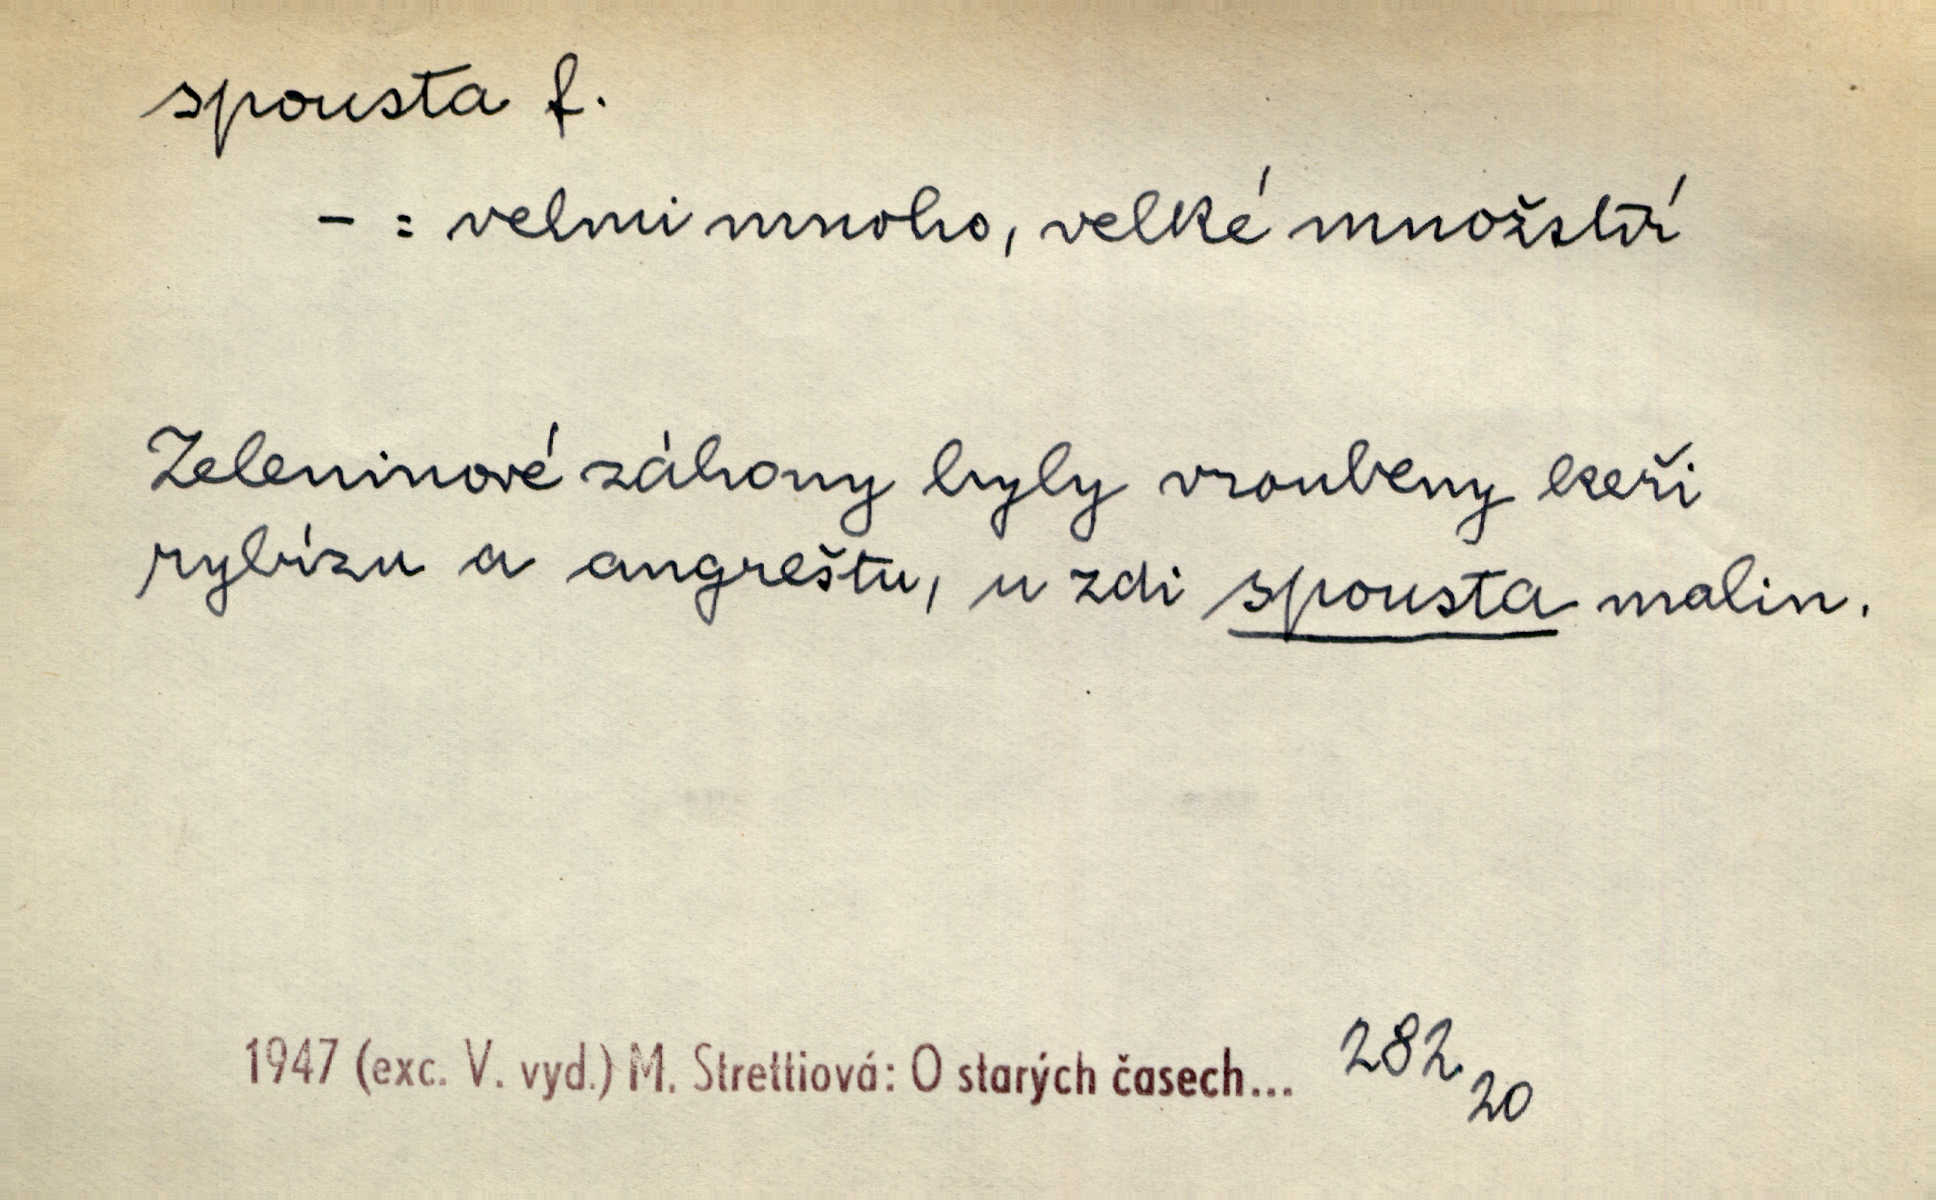 spousta f.
- = velmi mnoho, velké množství
Zeleninové záhony byly vroubeny keři
rybízu a angreštu, u zdi spousta malin.
1947 (exc. V. vyd.) M. Strettiová: O starých časech... 282
20